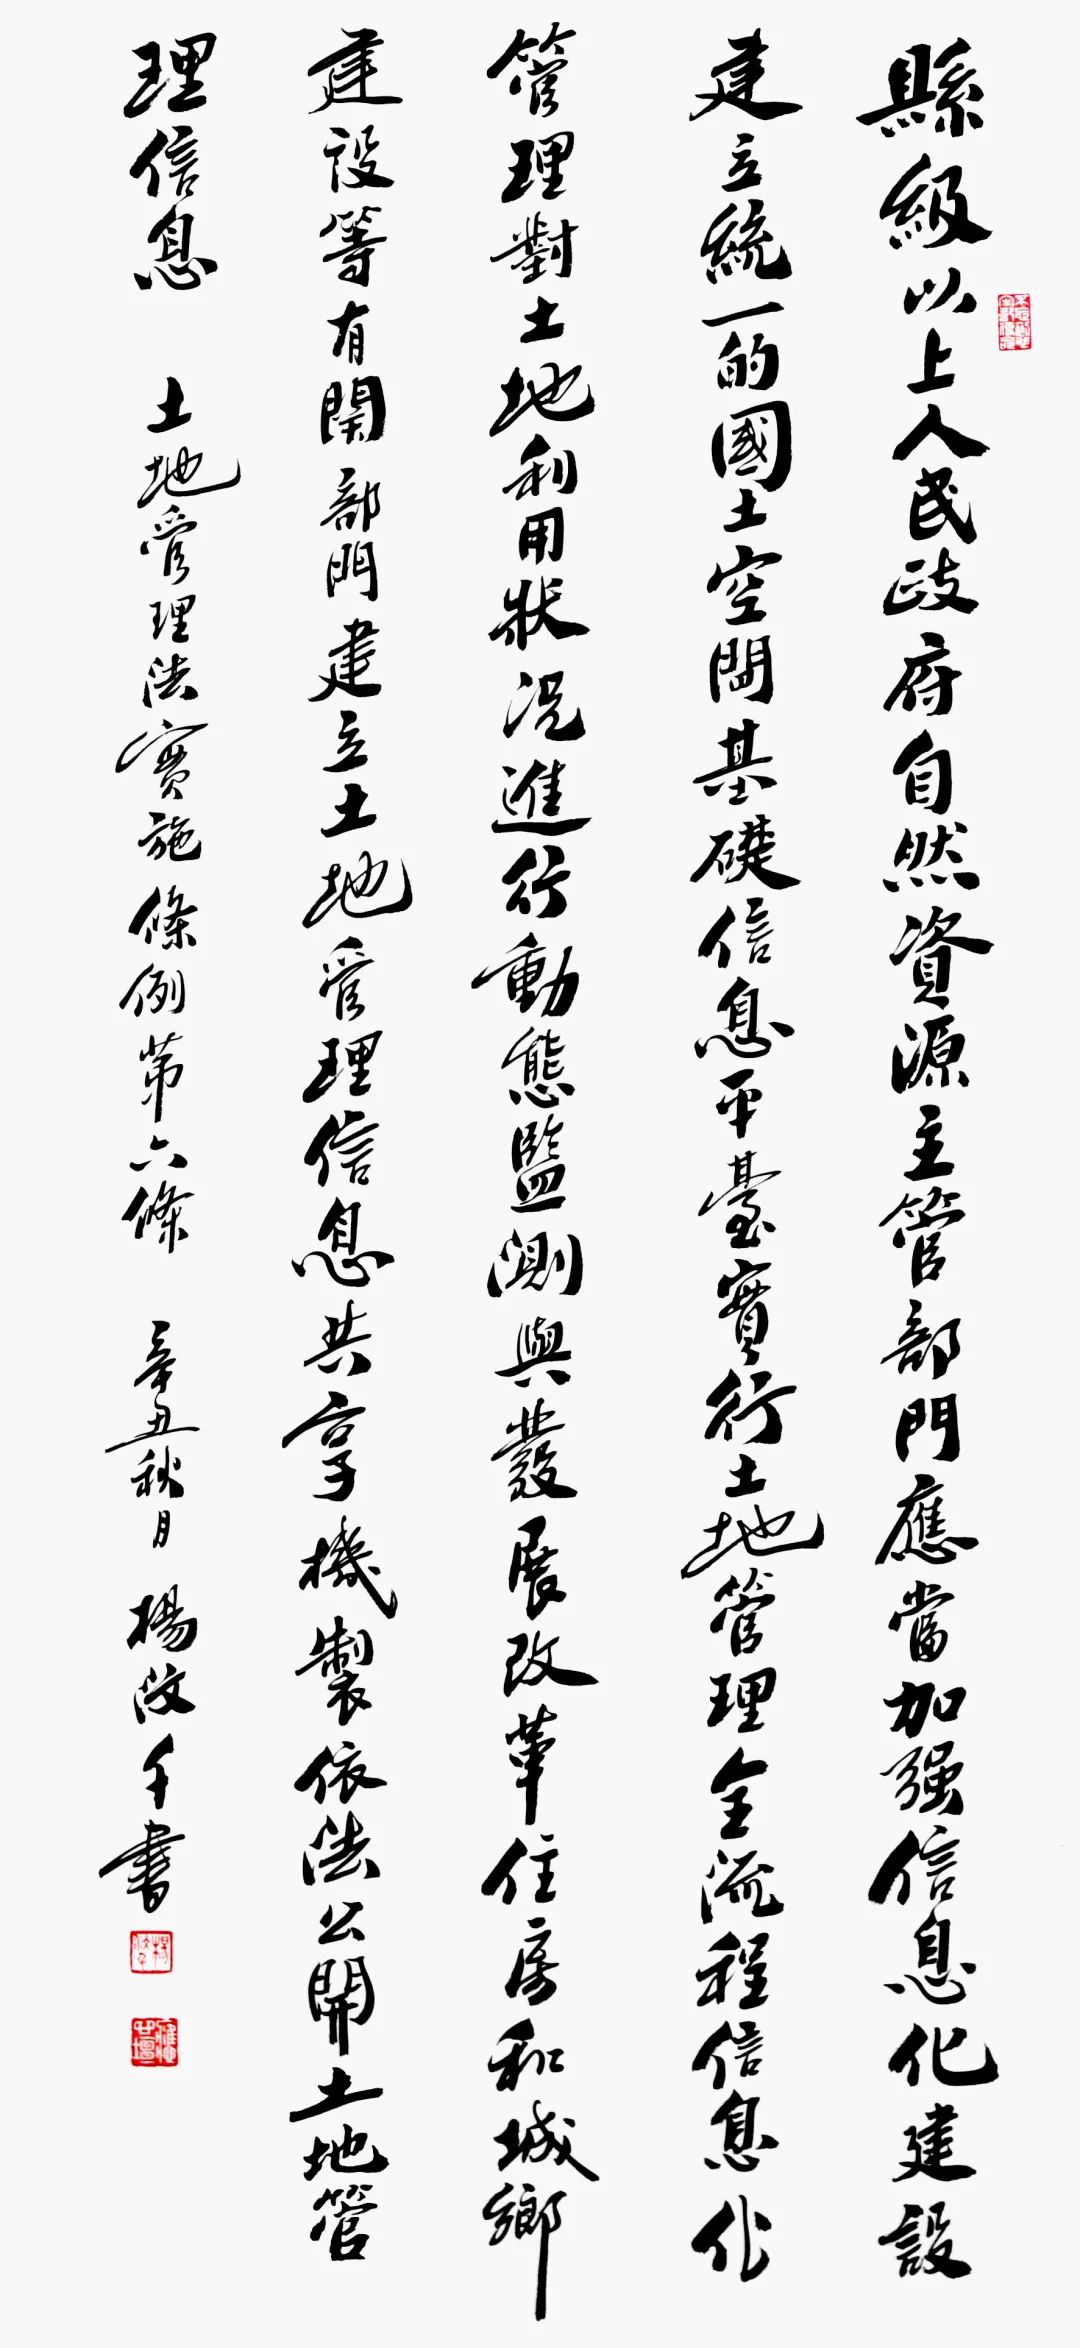 縣級以上人民政府自然資源主管部門應當加强信息化建設
建立統一的國土空間基礎信息平臺實行土地管理全流程信息化
管理對土地利用狀況進行動態監測與發展改革住房和城鄉
建設等有關部門建立土地管理信息共享機製依法公開土地管
理信息 土地管理法實施條例第六條 辛丑秋月 楊汶千書